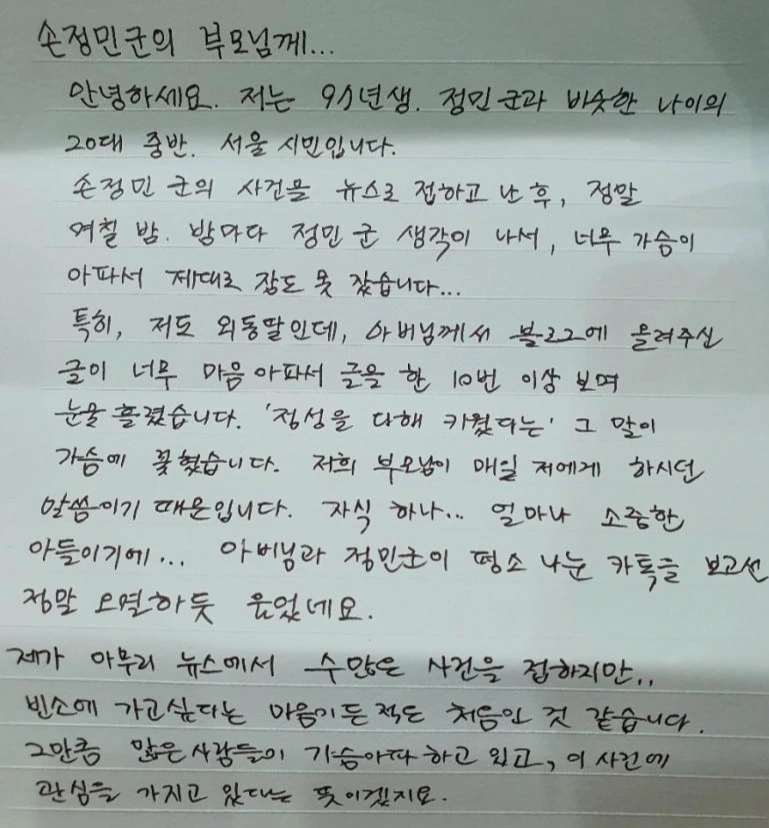 손정민군의 부모님께...
안녕하세요. 저는 95년생. 정민군과 비슷한 나이의
20대 중반. 서울 시민입니다.
손정민 군의 사건을 뉴스로 접하고 난 후, 정말
며칠 밤. 밤마다 정민 군 생각이 나서, 너무 가슴이
아파서 제대로 잠도 못 잤습니다...
특히, 저도 외동딸인데, 아버님께서 블로그에 올려주신
글이 너무 마음아파서 글을 한 10번 이상 보며
눈물 흘렸습니다. '정성을 다해 키웠다는' 그 말이
가슴에 꽂혔습니다. 저희 부모님이 매일 저에게 하시던
말씀이기 때문입니다. 자식 하나... 얼마나 소중한
아들이기에... 아버님과 정민군이 평소 나눈 카톡을 보고선
정말 오열하듯 울었네요.
제가 아무리 뉴스에서 수많은 사건을 접하지만..
빈소에 가고싶다는 마음이 든 적은 처음인 것 같습니다.
그만큼 많은 사람들이 가슴아파 하고 있고, 이 사건에
관심을 가지고 있다는 뜻이겠지요.